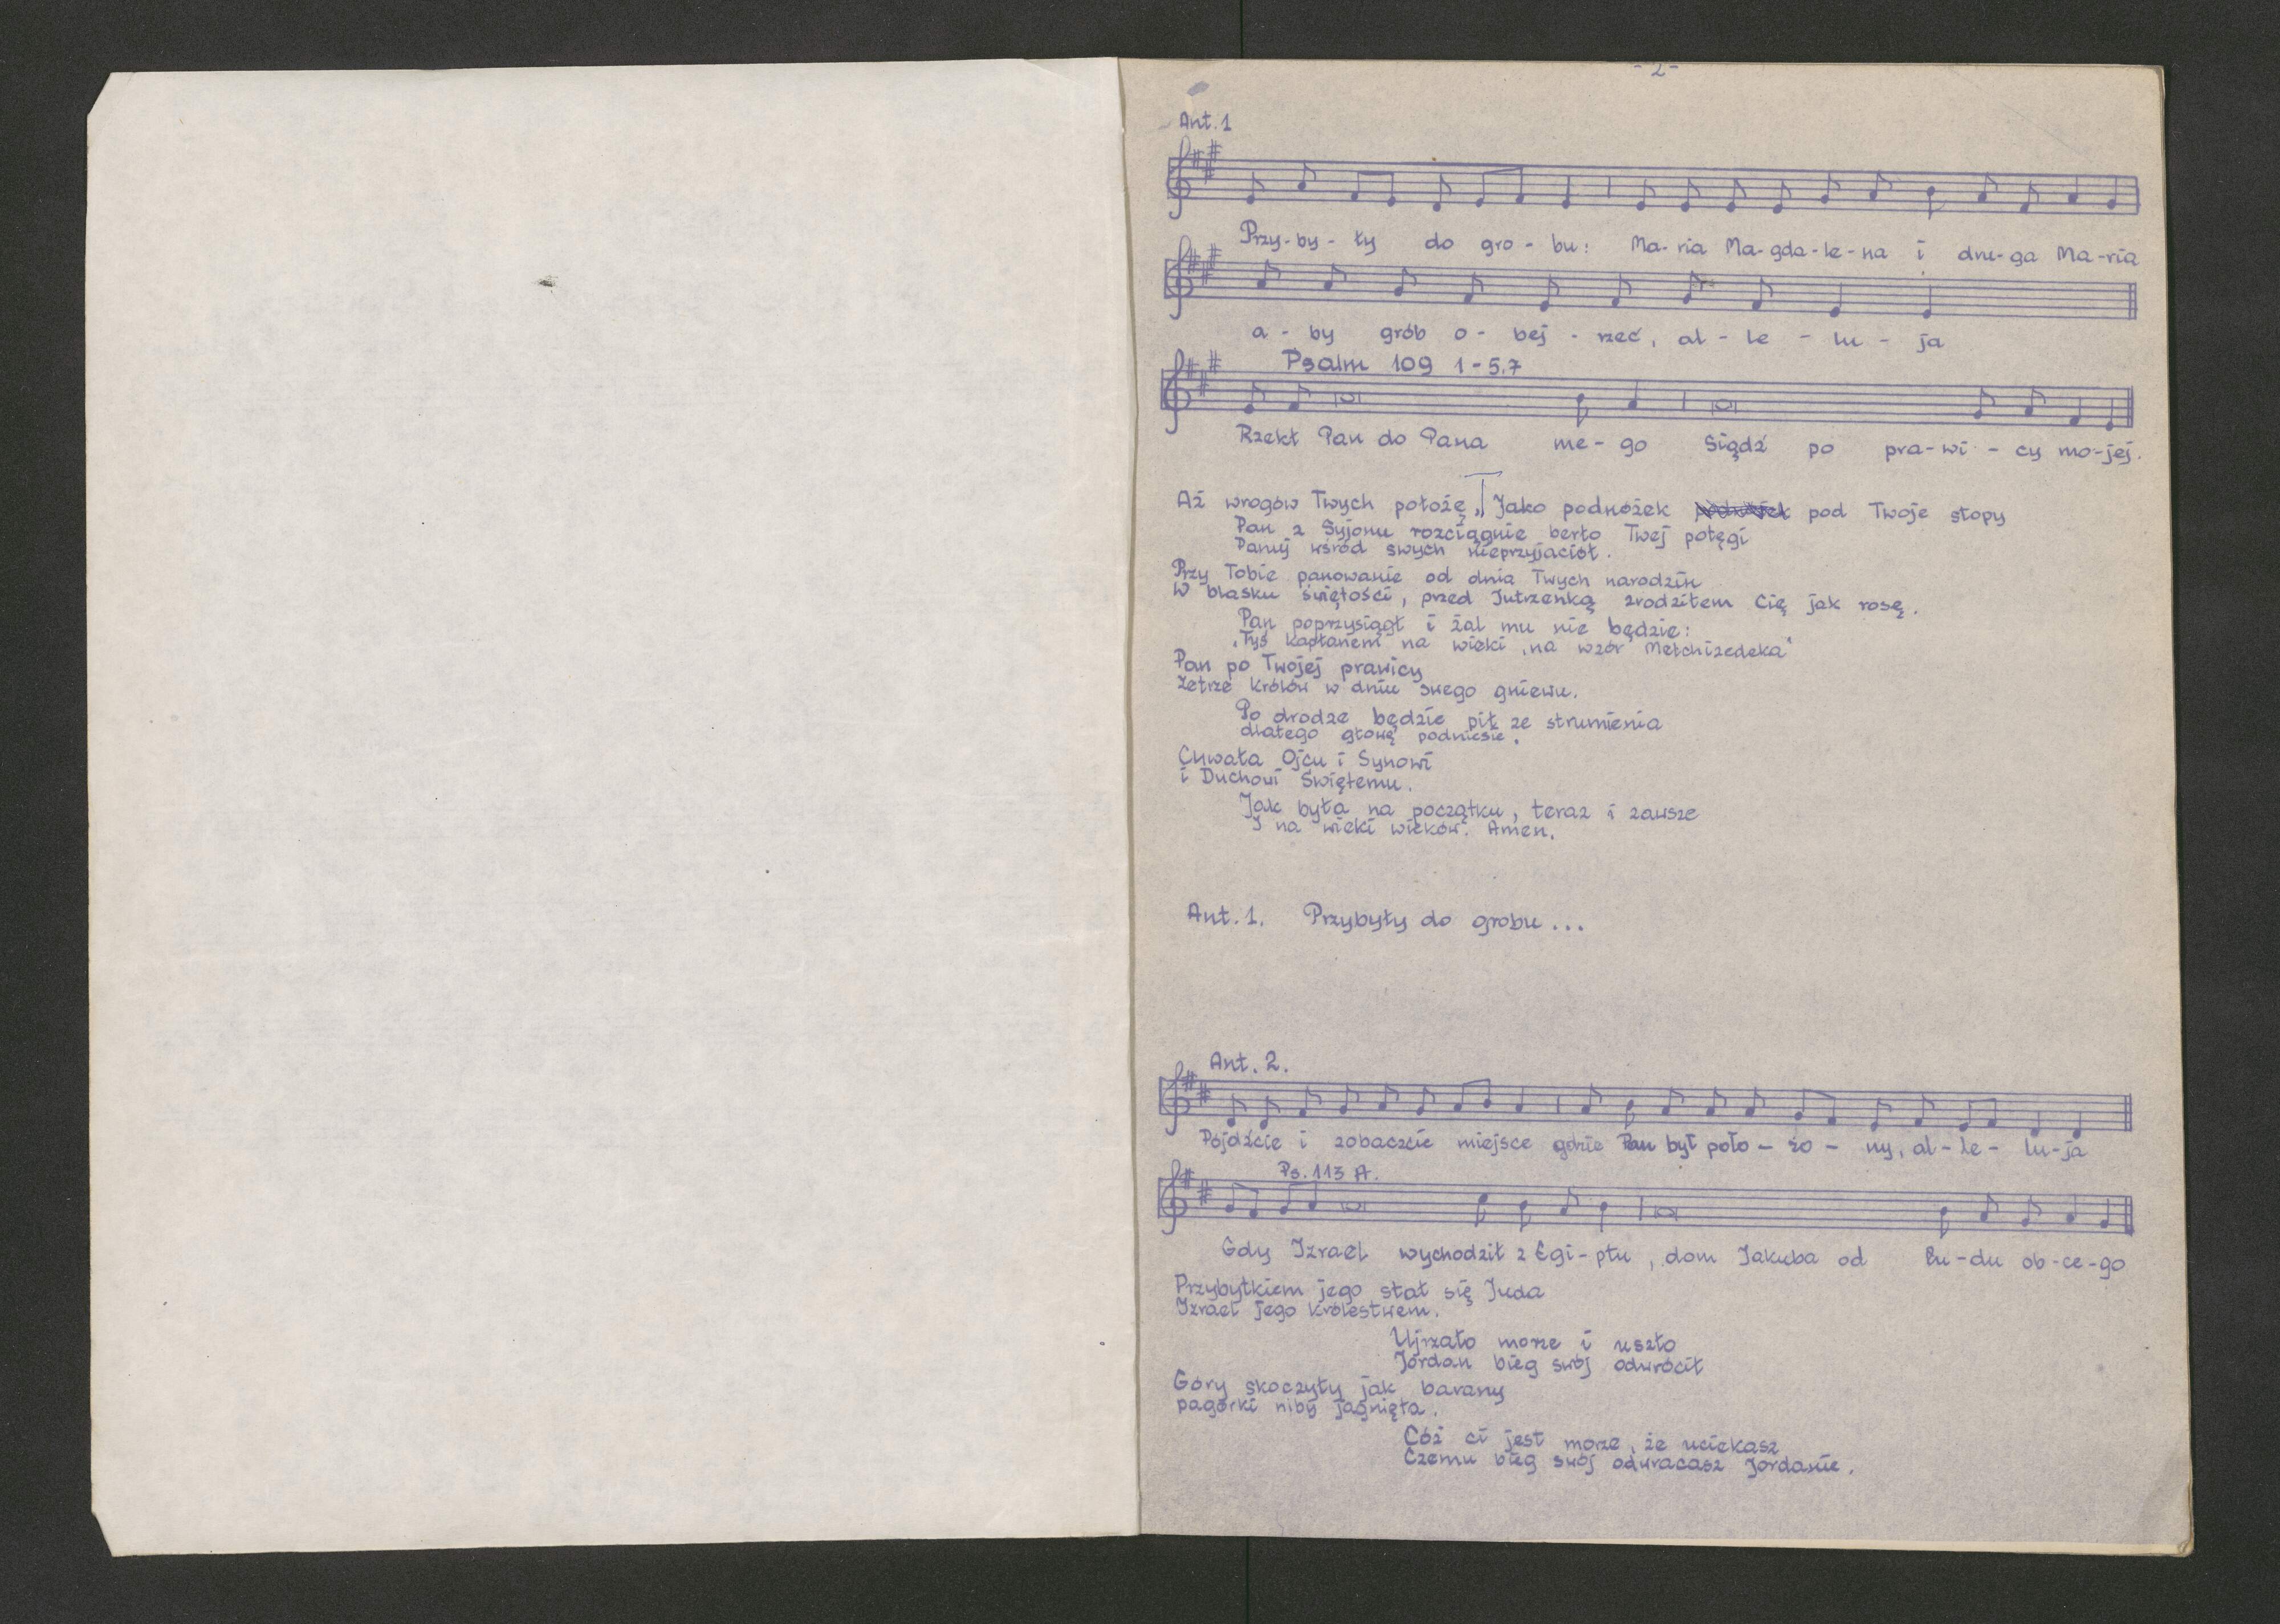 - 2 -
Ant. 1
Przy-by-ły do gro-bu: Ma-ria Ma-gda-le-na i dru-ga Ma-ria
a-by grób o-bej-rzeć, al-le-lu-ja
Psalm 109 1-5.7
Rzekł Pan do Pana me-go Siądź po pra-wi-cy mo-jej.
Aż wrogów Twych położę „Jako podnóżek pod Twoje stopy
Pan z Syjonu rozciągnie berło Twej potęgi
Panuj wśród swych nieprzyjaciół.
Przy Tobie panowanie od dnia Twych narodzin
W blasku świętości, przed Jutrzenką zrodziłem Cię jak rosę.
Pan poprzysiągł i żal mu nie będzie:
„Tyś kapłanem na wieki, na wzór Melchizedeka"
Pan po Twojej prawicy
zetrze królów w dniu swego gniewu.
Po drodze będzie pił ze strumienia
dlatego głowę podniesie.
Chwała Ojcu i Synowi
i Duchowi Świętemu.
Jak była na początku, teraz i zawsze
I na wieki wieków. Amen.
Ant. 1. Przybyły do grobu...
Ant. 2.
Pójdźcie i zobaczcie miejsce gdzie Pan był poło-żo-ny, al-le-lu-ja
Ps. 113 A.
Gdy Izrael wychodził z Egi-ptu, dom Jakuba od lu-du ob-ce-go
Przybytkiem jego stał się Juda
Izrael jego królestwem.
Ujrzało morze i uszło
Jordan bieg swój odwrócił
Góry skoczyły jak barany
pagórki niby jagnięta.
Cóż ci jest morze, że uciekasz
Czemu bieg swój odwracasz Jordanie.